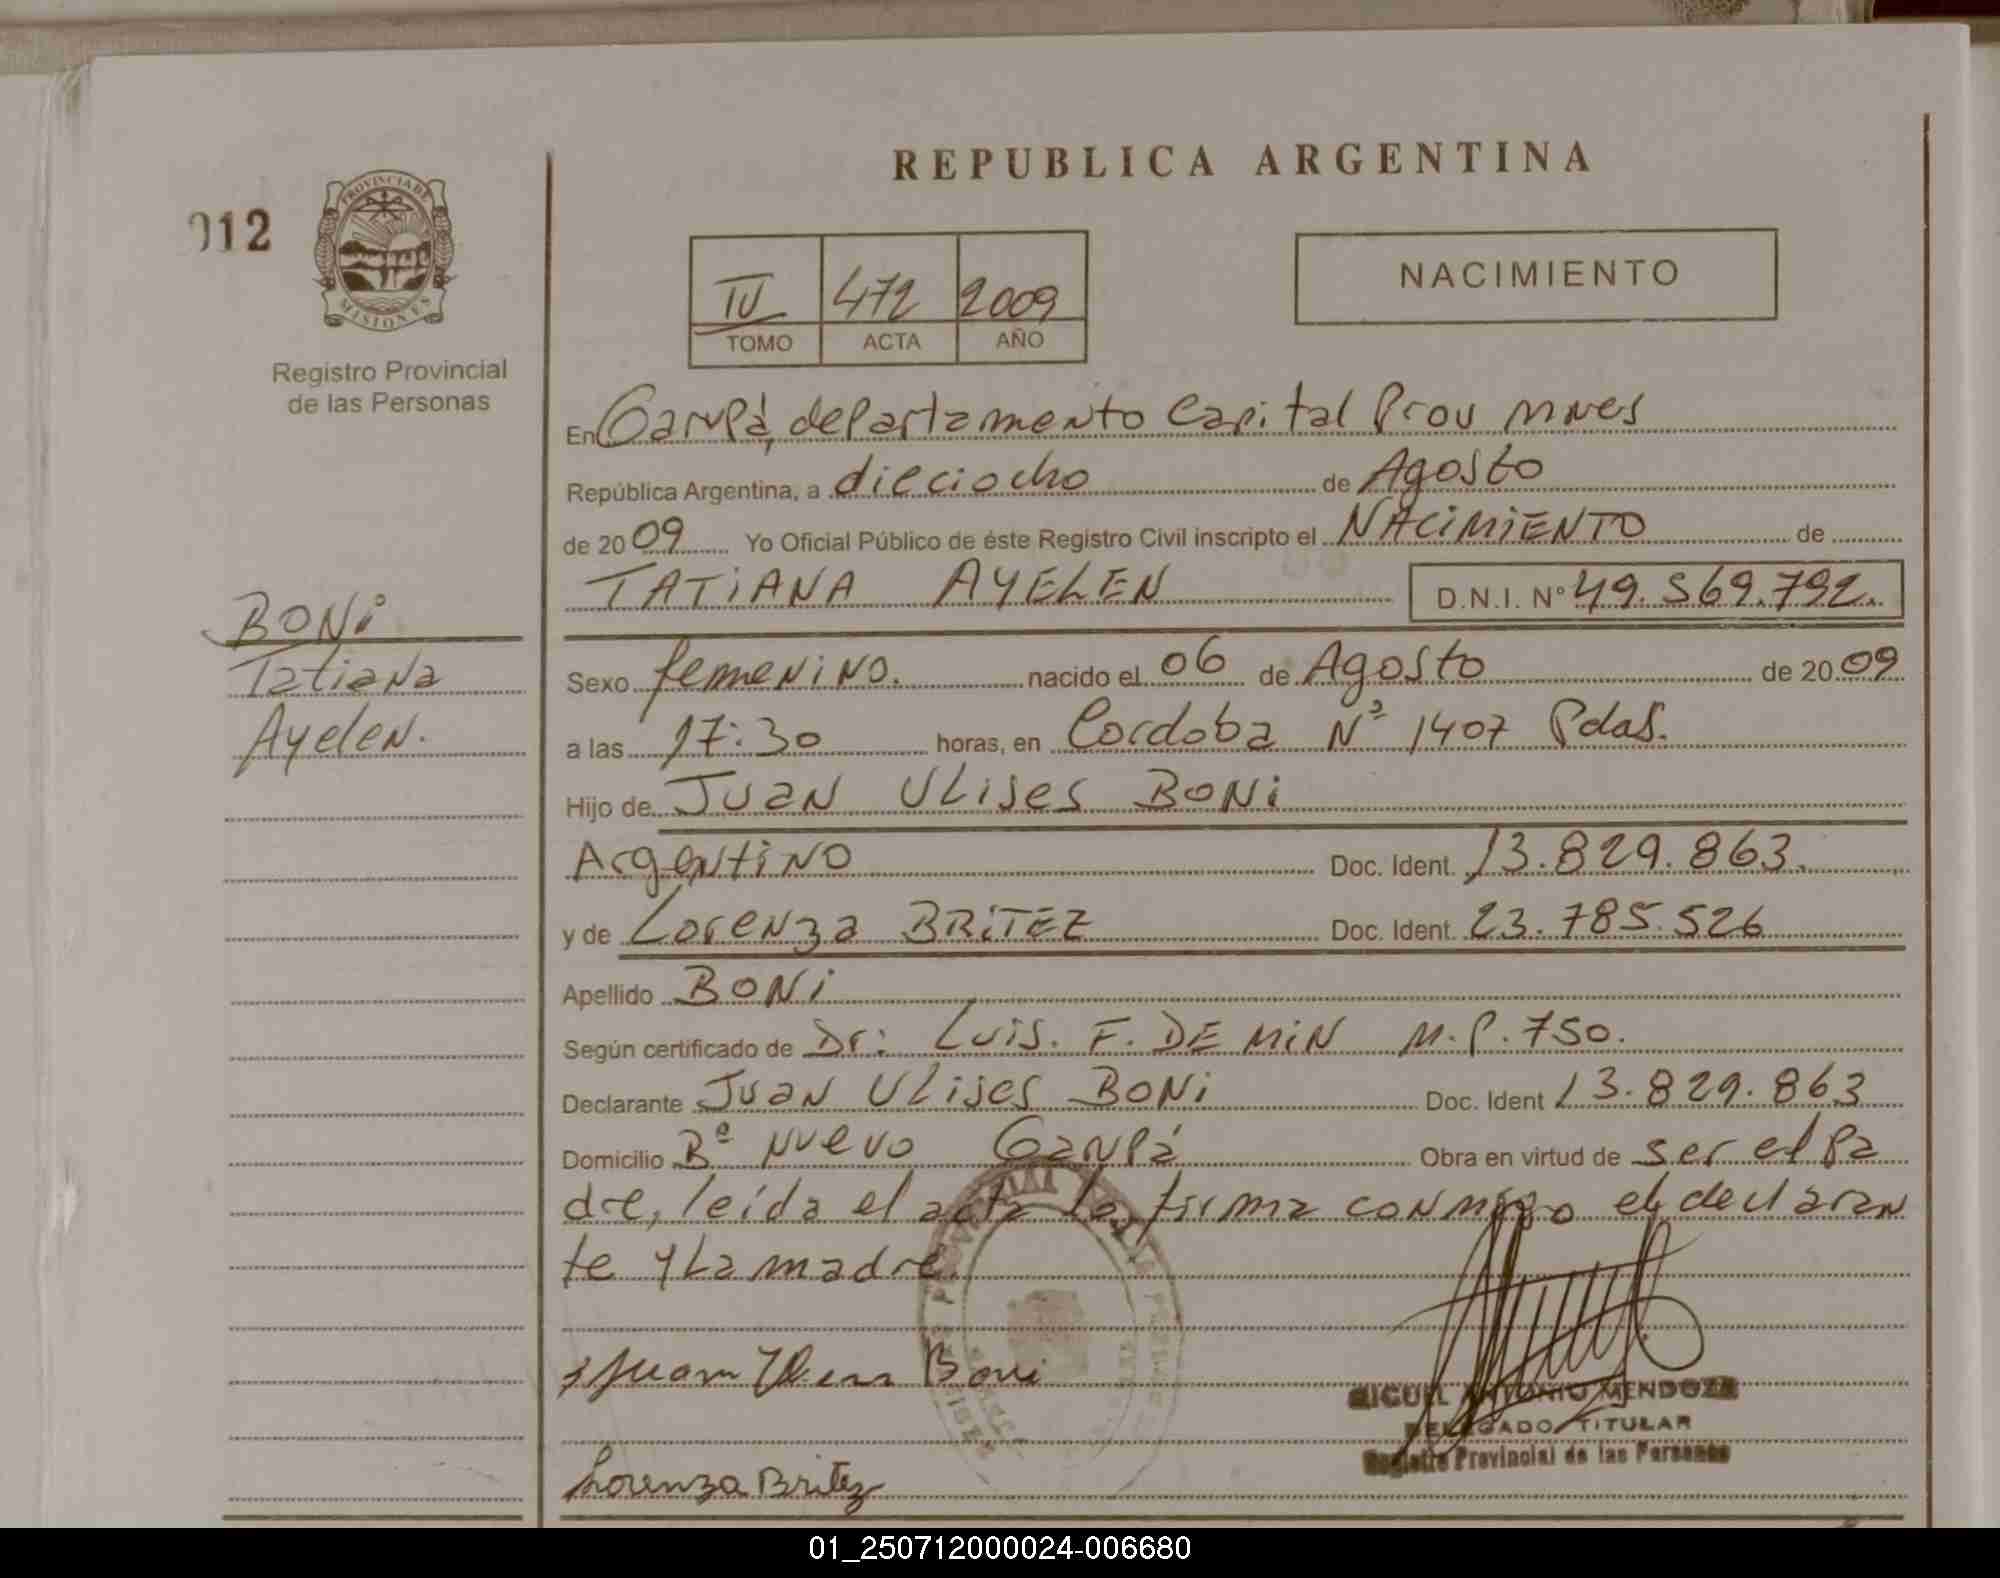 REPUBLICA ARGENTINA
012
PROVINCIA DE
MISIONES
Registro Provincial
de las Personas
IV 472 2009
TOMO ACTA AÑO
NACIMIENTO
En Garupá, departamento Capital Prov Mnes
República Argentina, a dieciocho de Agosto
de 2009 Yo Oficial Público de éste Registro Civil inscripto el NACIMIENTO de
TATIANA AYELEN D.N.I. Nº 49.569.792.
BONI
Tatiana
Ayelen.
Sexo femenino. nacido el 06 de Agosto de 2009
a las 17:30 horas, en Cordoba Nº 1407 Pdas.
Hijo de Juan Ulises BONI
Argentino Doc. Ident. 13.829.863.
y de Lorenza BRITEZ Doc. Ident. 23.785.526
Apellido BONI
Según certificado de Dr: Luis. F. DE MIN M.P. 750.
Declarante Juan Ulises BONI Doc. Ident 13.829.863
Domicilio Bº Nuevo Garupá Obra en virtud de ser el pa
dre, leída el acta la firma conmigo el declaran
te y La madre.
Juan Ulises Boni
MIGUEL ANTONIO MENDOZA
DELEGADO TITULAR
Registro Provincial de las Personas
Lorenza Britez
01_250712000024-006680